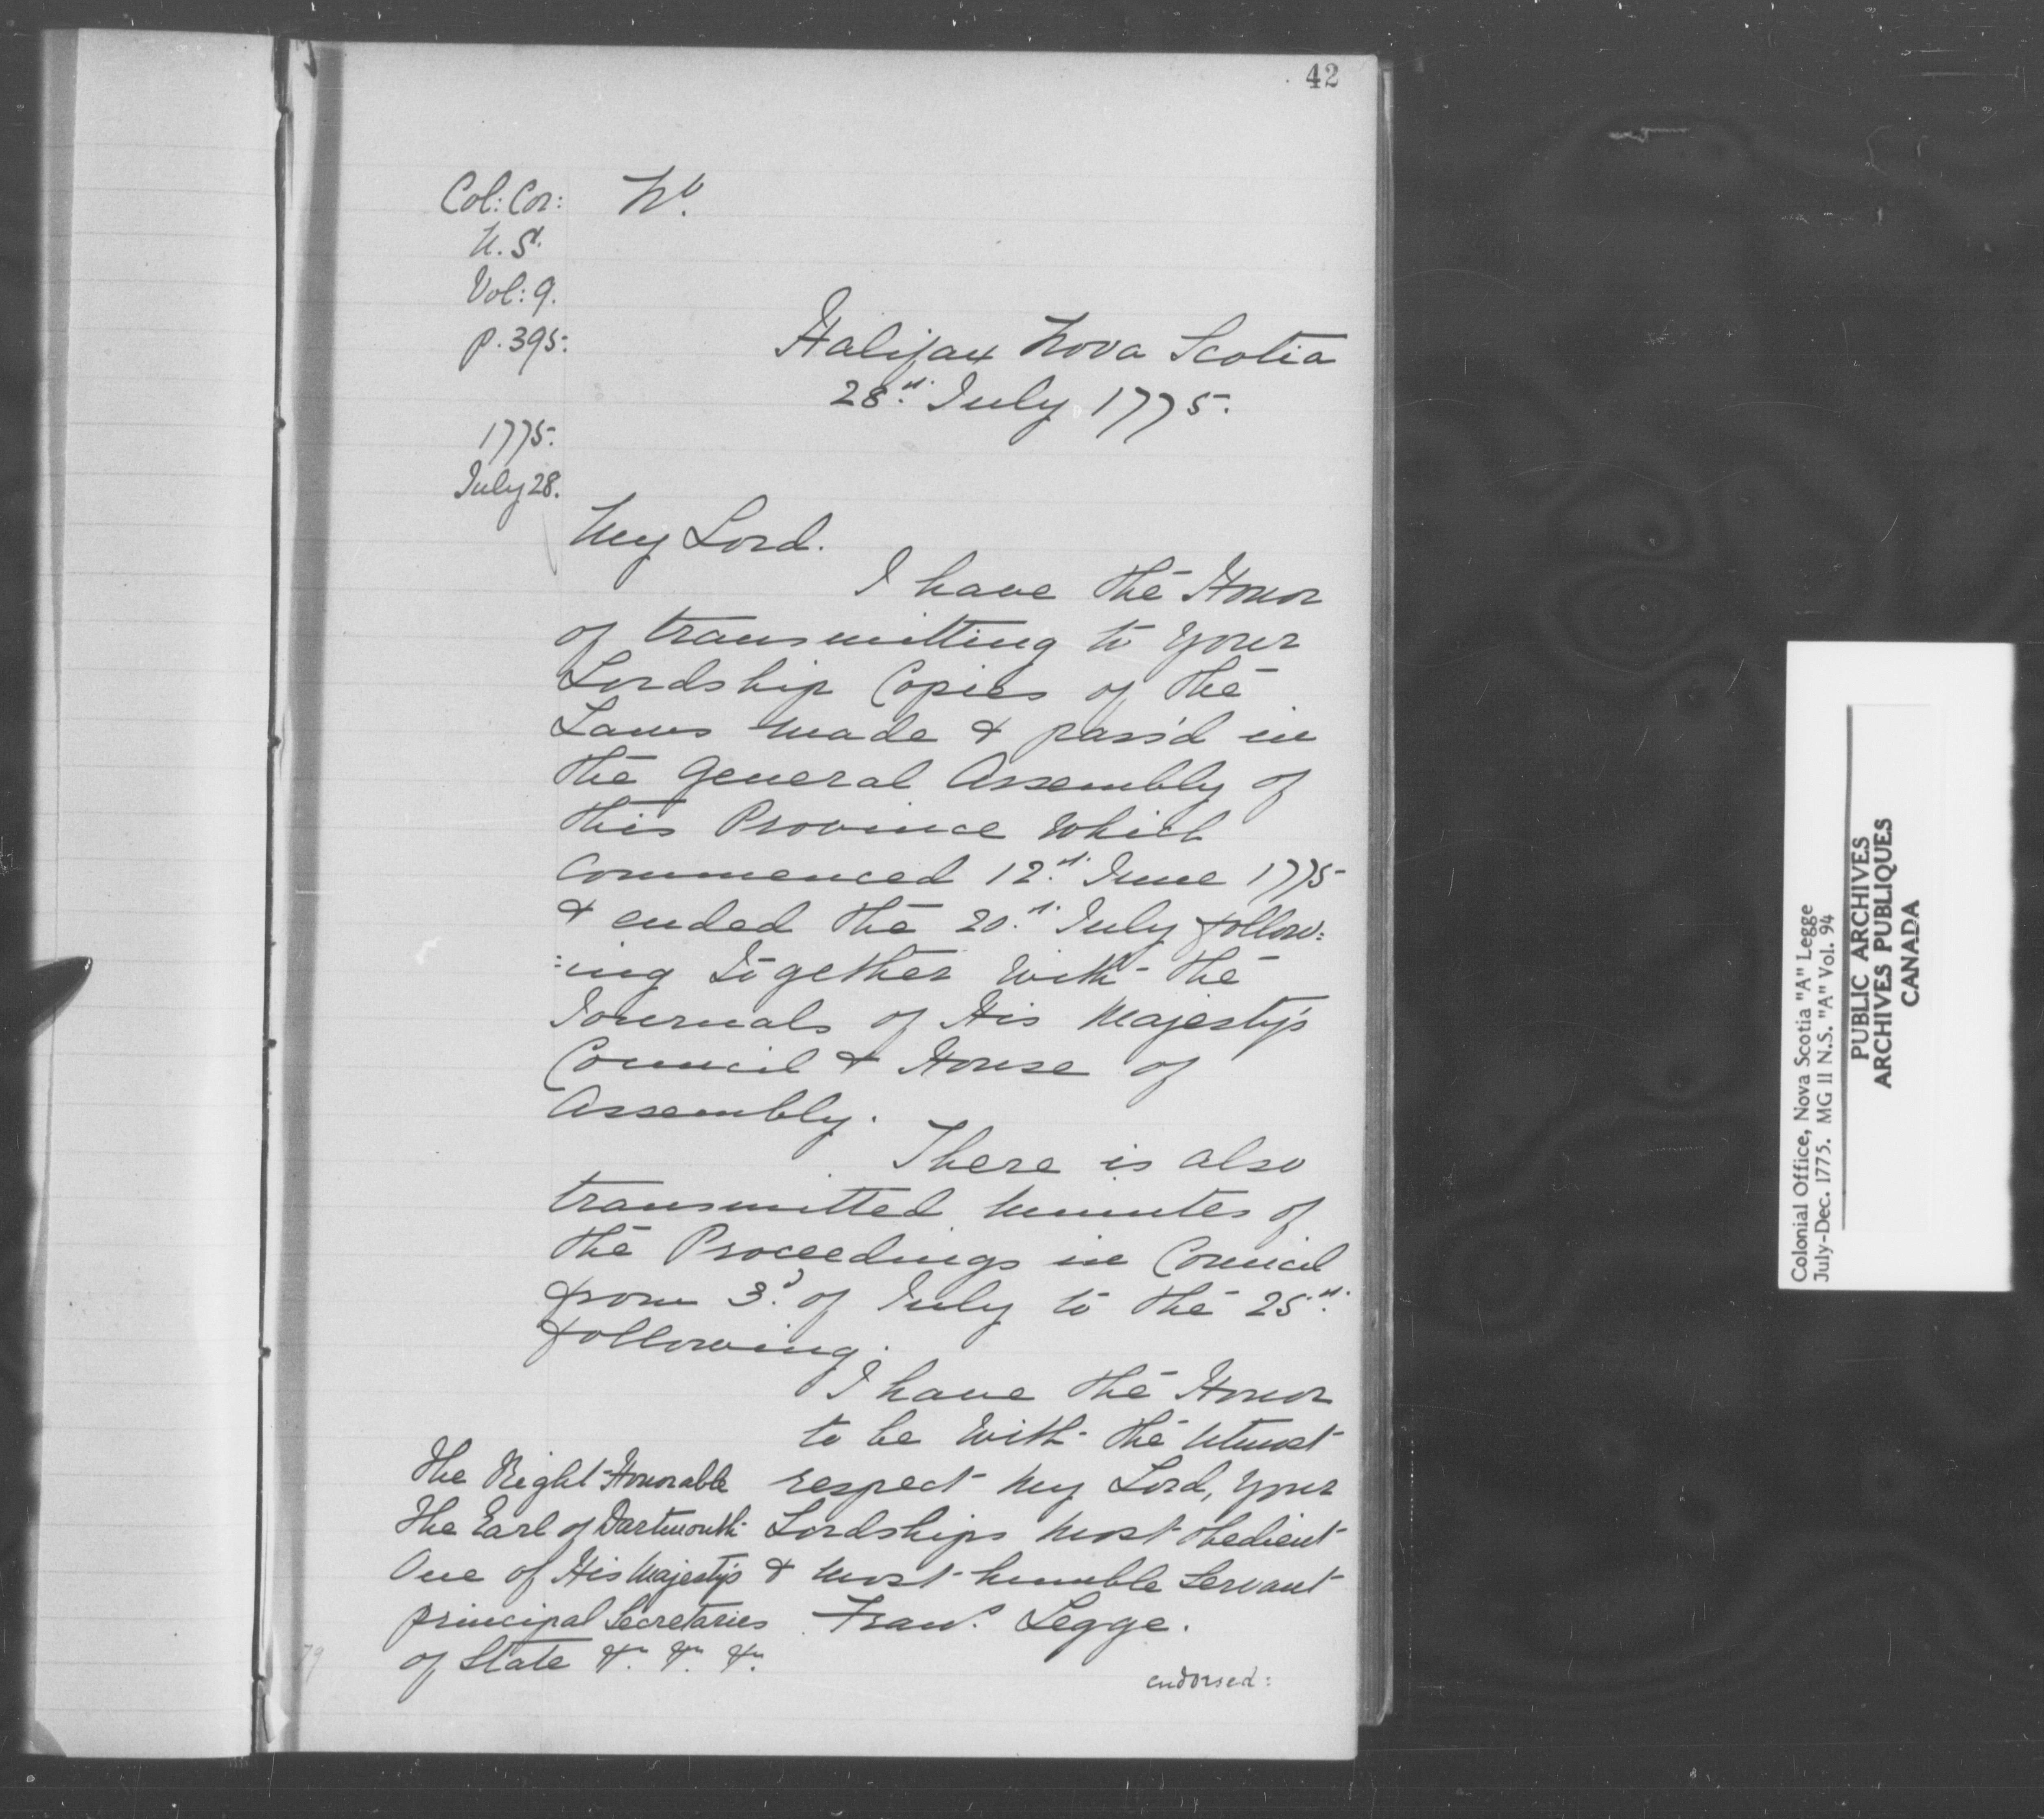 42
Col: Cor:
N.S.
Vol: 9.
p. 395.
1775.
July 28.
No.
Halifax Nova Scotia
28th. July 1775.
My Lord.
I have the Honor
of transmitting to your
Lordship Copies of the
Laws made & pass'd in
the General Assembly of
this Province which
Commenced 12th. June 1775
& ended the 20th. July follow:
:ing Together with the
Journals of His Majesty's
Council & House of
Assembly.
There is also
transmitted Minutes of
the Proceedings in Council
from 3d. of July to the 25th.
following.
I have the Honor
to be with the utmost
respect My Lord, Your
Lordships most obedient
& most humble Servant
Frans. Legge.
The Right Honorable
The Earl of Dartmouth
One of His Majesty's
principal Secretaries
of State &c. &c. &c.
endorsed:
79
Colonial Office, Nova Scotia "A" Legge
July-Dec. 1775. MG 11 N.S. "A" Vol. 94
PUBLIC ARCHIVES
ARCHIVES PUBLIQUES
CANADA